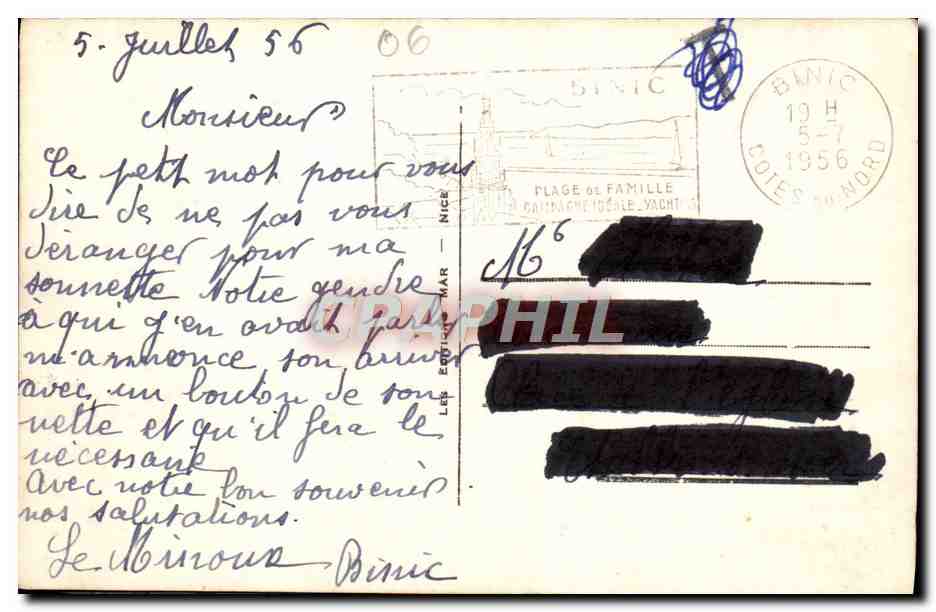 5. Juillet 56
06
Monsieur
Ce petit mot pour vous
dire de ne pas vous
déranger pour ma
sonnette Notre gendre
à qui j'en avait parler
m'annonce son arriver
avec un bouton de son
nette et qu'il fera le
nécessaire
Avec notre bon souvenir
nos salutations.
Le Minoux
Binic
BINIC
PLAGE DE FAMILLE
CAMPAGNE IDÉALE_YACHTING
BINIC
19 H
5-7
1956
COTES DU NORD
LES EDITIONS MAR — NICE
Mr
CPAPHIL